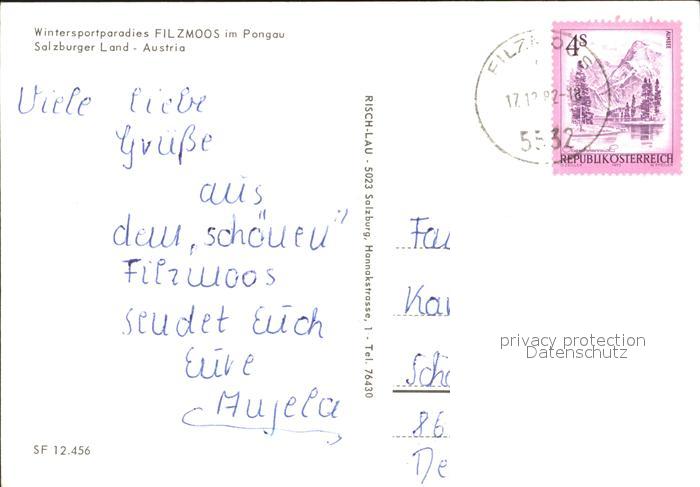 Wintersportparadies FILZMOOS im Pongau
Salzburger Land - Austria
Viele liebe
Grüße
aus
dem „schönen"
Filzmoos
sendet Euch
Eure
Angela
SF 12.456
RISCH-LAU - 5023 Salzburg, Hannakstrasse, 1 - Tel. 76430
FILZMOOS
17.12.82-18
5532
4S
ALMSEE
REPUBLIK ÖSTERREICH
Fam
Kar
Sch
86
De
privacy protection
Datenschutz